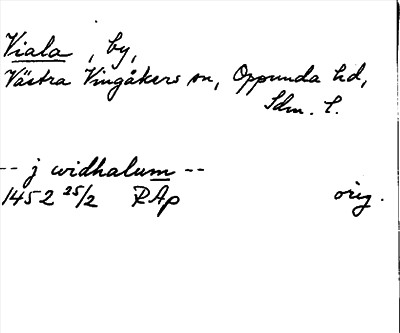 Viala, by,
Västra Vingåkers sn, Oppunda hd,
Sdm. l.
-- j widhalum --
1452 25/2 RAp orig.